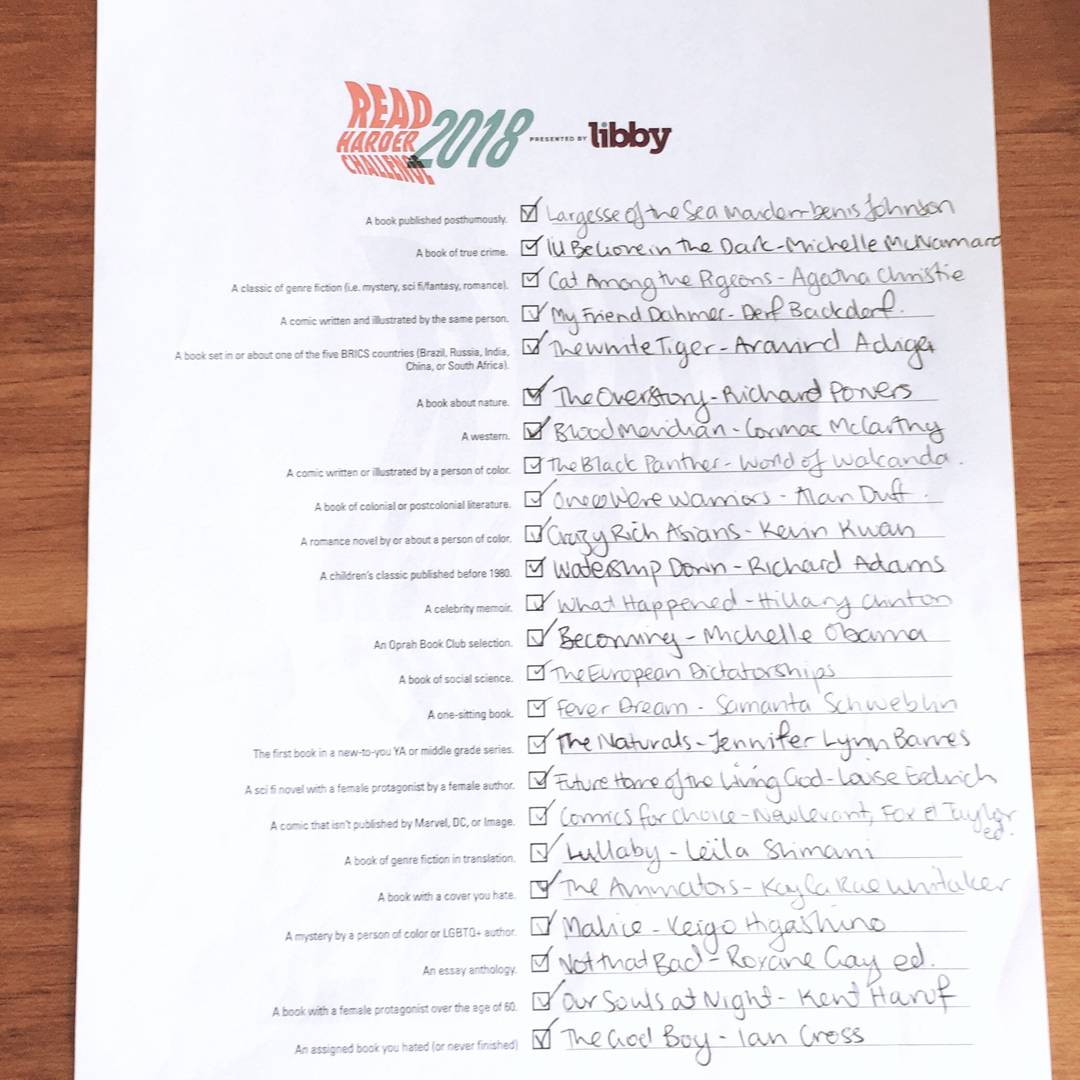 READ HARDER CHALLENGE 2018 PRESENTED BY libby
A book published posthumously. Largesse of the Sea Maiden - Denis Johnson
A book of true crime. I'll Be Gone in the Dark - Michelle McNamara
A classic of genre fiction (i.e. mystery, sci fi/fantasy, romance). Cat Among the Pigeons - Agatha Christie
A comic written and illustrated by the same person. My Friend Dahmer - Derf Backdorf.
A book set in or about one of the five BRICS countries (Brazil, Russia, India, The White Tiger - Aravind Adiga
China, or South Africa).
A book about nature. The Overstory - Richard Powers
A western. Blood Meridian - Cormac McCarthy
A comic written or illustrated by a person of color. The Black Panther - World of Wakanda.
A book of colonial or postcolonial literature. Once Were Warriors - Alan Duff.
A romance novel by or about a person of color. Crazy Rich Asians - Kevin Kwan
A children's classic published before 1980. Watership Down - Richard Adams
A celebrity memoir. What Happened - Hillary Clinton
An Oprah Book Club selection. Becoming - Michelle Obama
A book of social science. The European Dictatorships
A one-sitting book. Fever Dream - Samanta Schweblin
The first book in a new-to-you YA or middle grade series. The Naturals - Jennifer Lynn Barnes
A sci fi novel with a female protagonist by a female author. Future Home of the Living God - Louise Erdrich
A comic that isn't published by Marvel, DC, or Image. Comics for Choice - Newlevant, Fox & Taylor
ed.
A book of genre fiction in translation. Lullaby - Leïla Slimani
A book with a cover you hate. The Animators - Kayla Rae Whitaker
A mystery by a person of color or LGBTQ+ author. Malice - Keigo Higashino
An essay anthology. Not that Bad - Roxane Gay ed.
A book with a female protagonist over the age of 60. Our Souls at Night - Kent Haruf
An assigned book you hated (or never finished) The God Boy - Ian Cross